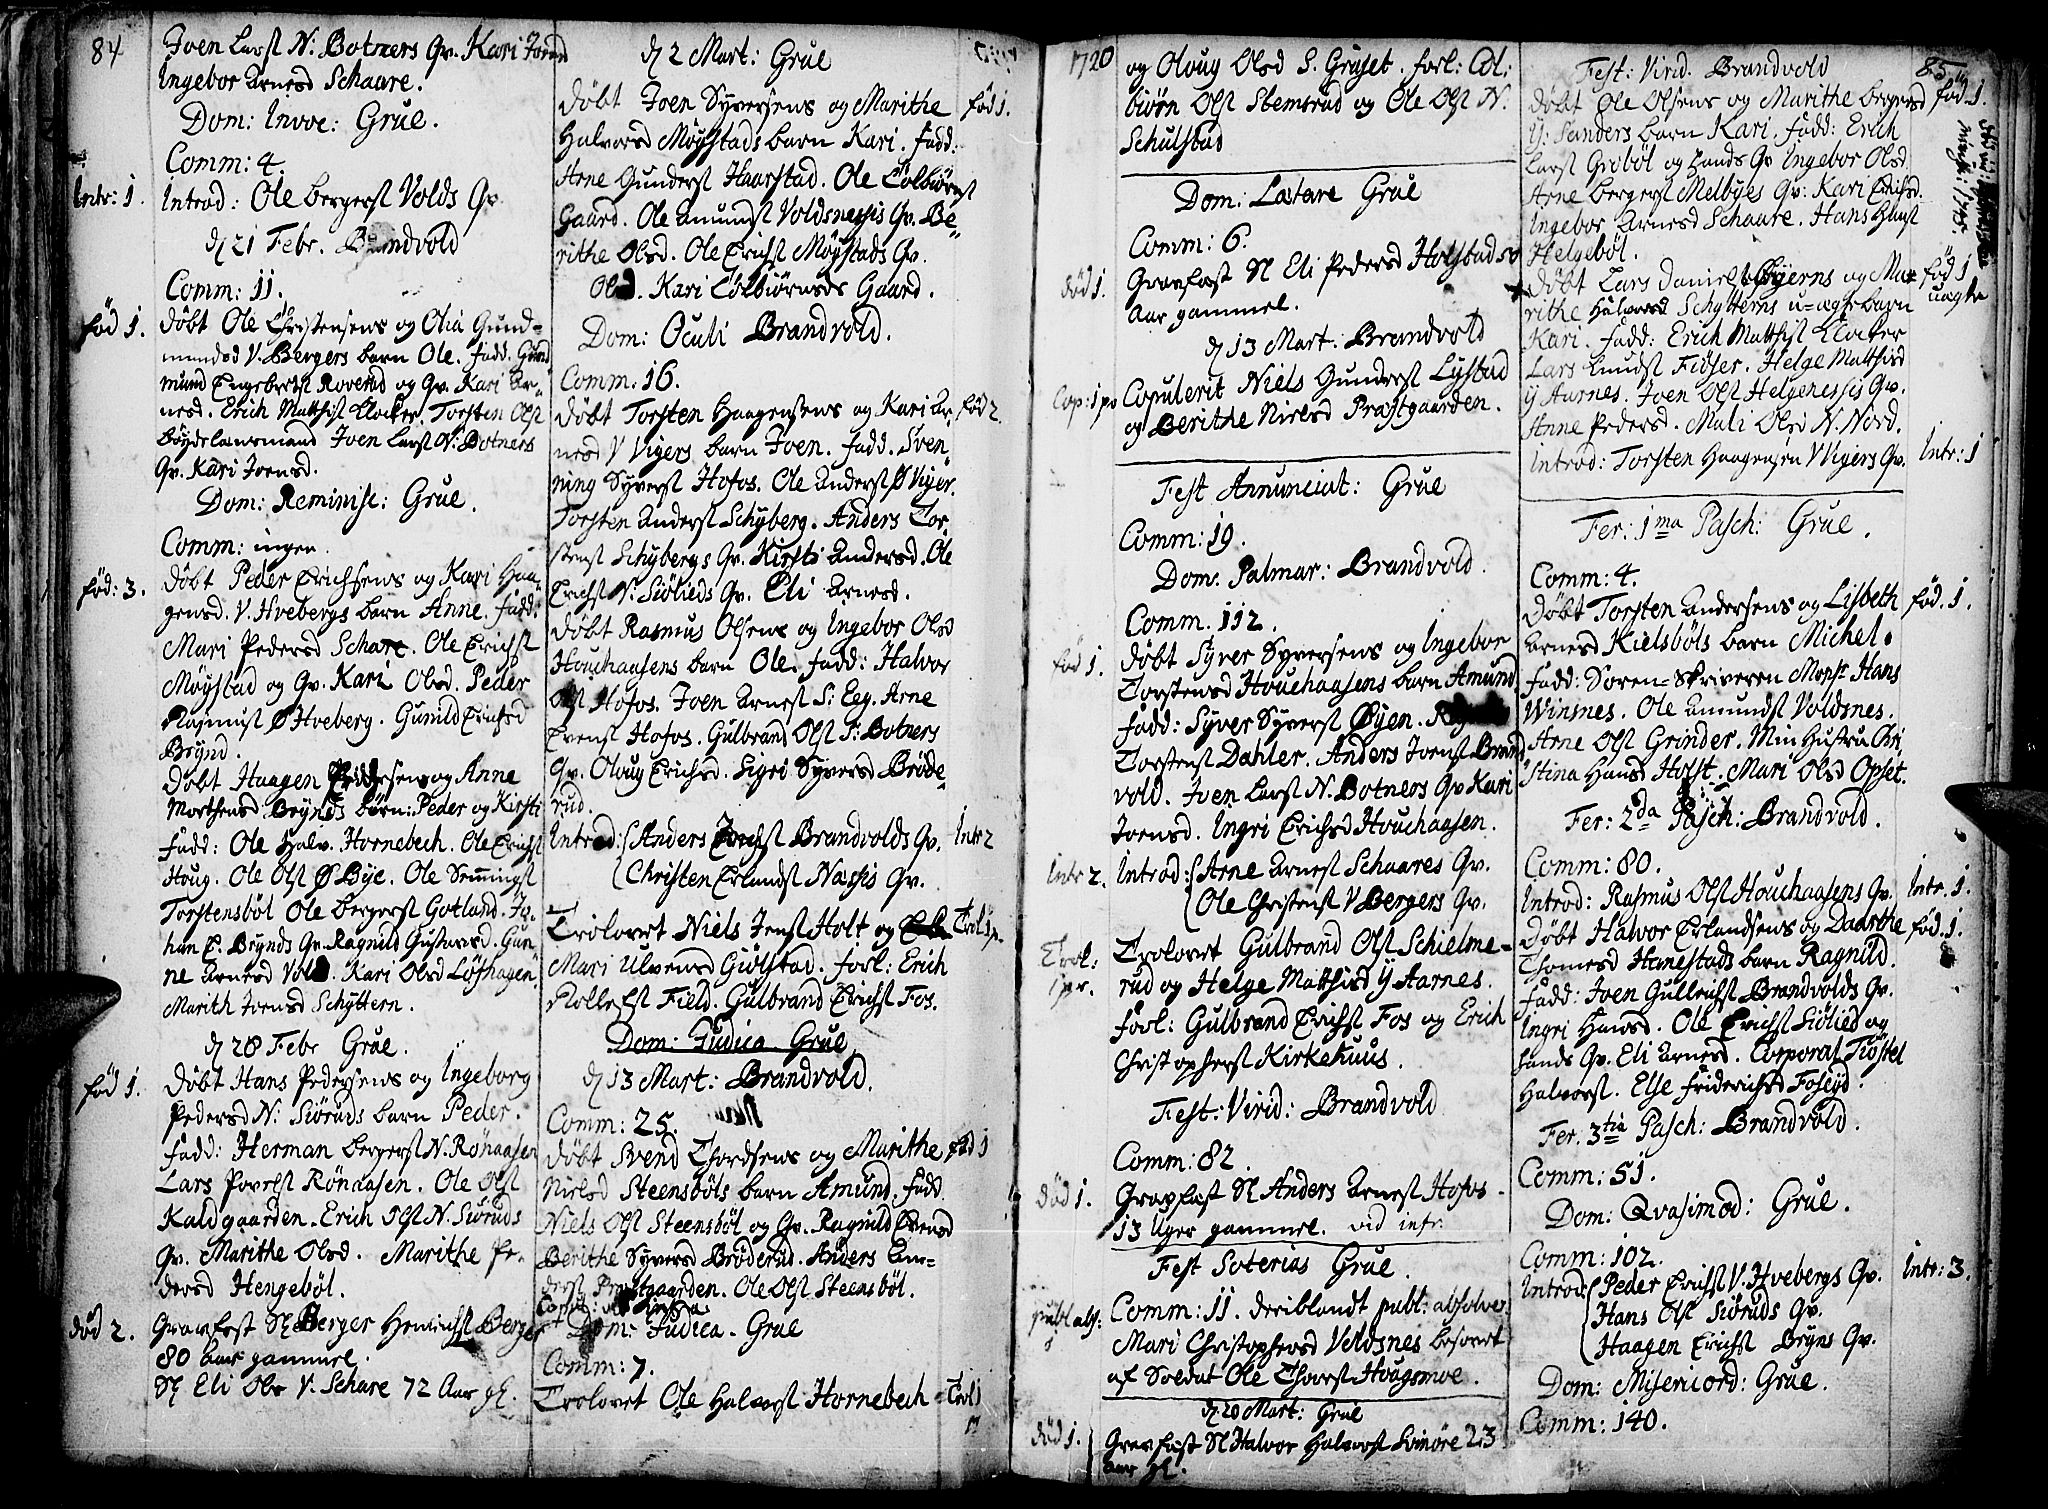 84
Joen Larsſ N: Botners Qv. Kari Joensd
Ingebor Arnesd Schaare.
Dom: Invoc: Grue.
Comm: 4.
Intr: 1. Introd: Ole Bergersſ Volds Qv
d 21 Febr. Brandvold
Comm: 11.
fød 1. Døbt Ole Christensens og Olia Gund-
mundsd V. Bergers barn Ole. fadd. Gund
mund Engebertsſ Roverud og Qv. Kari Ar-
nesd. Erich Matthisſ Klocker. Torsten Olsſ
bøÿdelansmand Joen Larsſ N: Botners
Qv. Kari Joensd.
Dom: Reminisc: Grue.
Comm: ingen.
fød: 3. Døbt Peder Erichsens og Kari Haa-
gensd. V. Hvebergs barn Anne. fadd:
Mari Pedersd Schare. Ole Erichsſ
Møÿstad og Qv. Kari Olsd. Peder
Rasmusſ Ø Hveberg. Gunild Erichsd
Brÿnd.
Døbt Haagen Erichsens og Anne
Morthensd Brÿnds børn: Peder og Kirsti
fadd: Ole Halv. Hornebech. Ole Erichsſ
Houg. Ole Olsſ Ø Bÿe. Ole Semingsſ
Torstensbøl Ole Bergersſ Gotland. Jo-
han E. Brÿnds Qv. Ragnild Gustavsd. Gun
ne Arnesd Vold. Kari Olsd Løfhagen
Marith Joensd Schÿttern.
d 28 Febr Grue.
fød 1. Døbt Hans Pedersens og Ingeborg
Pedersd N: Siøruds barn Peder.
fadd: Herman Bergersſ N. Rønaasen
Lars Povelsſ Rønaasen. Ole Olsſ
Kaldgaarden. Erich Olsſ N. Siøruds
Qv. Marithe Olsd. Marithe Pe-
dersd Hengebøl.
død 2. Gravfest Sl Berger Henrichsſ Berger
80 Aar gammel.
Sl Eli Olsd V. Schare 72 Aar gl.
d 2 Mart: Grue
Døbt Joen Sÿversens og Marithe fød 1.
Halvorsd Møÿstads barn Kari. fadd:
Arne Gundersſ Haarstad. Ole Colbiørnsſ
Gaard. Ole Amundsſ Voldsnessis Qv. Be-
rithe Olsd. Ole Erichsſ Møÿstads Qv.
Olsd. Kari Colbiørnsds Gaard.
Dom: Oculi Brandvold.
Comm. 16.
Døbt Torsten Haagensens og Kari Ar- fød 2.
nesd V Vigers barn Joen. fadd. Sven-
ning Sÿversſ Hofos. Ole Andersſ Ø Viger.
Torsten Andersſ Schÿberg. Anders Tor-
stensſ Schÿbergs Qv. Kirsti Andersd. Ole
Erichsſ N: Siølieds Qv. Eli Arnesd.
Døbt Rasmus Olsens og Ingebor Olsd
Houchaasens barn Ole. fadd: Halvor
Olsſ Hofos. Joen Arnesſ S: Eeg. Arne
Evensſ Hofos. Gulbrand Olsſ S: Botners
Qv. Oloug Erichsd. Sigri Sÿversd Brøde-
rud.
Introd: Anders Erichsſ Brandvolds Qv. Intr 2
Christen Erlandsſ Nassis Qv.
Trolovet Niels Jensſ Holt og Trol 1 p.
Mari Ulvensd Giølstad. forl: Erich
Rollefsſ Field. Gulbrand Erichsſ Fos.
Dom: Judica Grue
d 13 Mart: Brandvold.
Comm: 25.
Døbt Svend Thordsens og Marithe fød 1
Nielsd Steensbøls barn Amund. fadd.
Niels Olsſ Steensbøl og Qv. Ragnild Evensd
Berithe Sÿversd Brøderud. Anders An-
dersſ Præstgaarden. Ole Olsſ Steensbøl.
Dom: Judica. Grue
Comm: 7.
Trolovet Ole Halvorsſ Hornebech Trol 1
1720
og Oloug Olsd S. Gruset. forl: Col:
biørn Olsſ Stemsrud og Ole Olsſ N.
Schulstad
Dom: Lætare Grue
Comm: 6.
død 1. Gravfæst Sl Eli Pedersd Holstad 50
Aar gammel.
d 13 Mart: Brandvold
Cop: 1 par Copulerit Niels Gundersſ Lÿstad
og Berithe Nielsd Præstgaarden.
Fest Annunciat: Grue
Comm: 19.
Dom: Palmar: Brandvold.
Comm. 112.
fød 1. Døbt Sÿver Sÿversens og Ingebor
Torstensd Houchaasens barn Amund
fadd: Sÿver Sÿversſ Øÿen.
Torstensſ Dahler. Anders Joensſ Brand
vold. Joen Larsſ N. Botners Qv Kari
Joensd. Ingri Erichsd Houchaasen.
Intr 2. Introd: Arne Arnesſ Schaares Qv.
Ole Christensſ V Bergers Qv.
Trol: 1 pr. Trolovet Gulbrand Olsſ Schielme-
rud og Helge Matthisd Ÿ Aarnes.
forl: Gulbrand Erichsſ Fos og Erich
Christophersſ Kirkehuus.
Fest: Virid: Brandvold
Comm: 82.
død 1. Gravfæst Sl Anders Arnesſ Hofos
13 Uger gammel. vid infr:
Fest Soterias Grue.
publ abs: 1 Comm: 11. deriblandt publ: absolver
Mari Christophersd Veldsnes besovet
af Soldat Ole Thorsſ Hougsmoe.
d 20 Mart: Grue
død 1. Gravfæst Sl Halvor Halvorsſ Svinøre 23
Aar gl.
85
Fest: Virid. Brandvold
Døbt Ole Olsens og Marithe Bergersd fød. 1.
Ÿ: Sanders barn Kari. fadd: Erich
Larsſ Grøbøl og Hands Qv Ingebor Olsd.
Arne Bergersſ Melbÿes Qv: Kari Erichsd.
Ingebor Arnesd Schaare. Hans Hansſ
Helgebøl.
Døbt Lars Daniels Bÿerns og Ma- fød 1
rithe Halvorsd Schÿtterns u-ægte barn uægte
Kari. fadd: Erich Matthisſ Klocker
Lars Knudsſ Fidser. Helge Matthisd
Ÿ Aarnes. Joen Olsſ Helgenessis Qv.
Anne Pedersd. Mali Olsd N. Nord.
Introd: Torsten Haagensen V Vigers Qv. Intr: 1
Fer: 1ma Pasch: Grue.
Comm: 4.
Døbt Torsten Andersens og Lisbeth fød. 1.
Arnesd Kielsbøls barn Michel.
fadd: Soren-Skriveren Monsr Hans
Winsnes. Ole Amundsſ Voldsnes.
Arne Olsſ Grinder. Min Hustru Chri
stina Hansd Holst. Mari Olsd Opset.
Fer: 2da Pasch: Brandvold.
Comm: 80.
Introd: Rasmus Olsſ Houchaasens Qv. Intr. 1.
Døbt Halvor Erlandsens og Daarthe fød. 1.
Thomesd Hanestads barn Ragnild.
fadd: Joen Gullichsſ Brandvolds Qv.
Ingri Hansd. Ole Erichsſ Siølied og
Hands Qv. Eli Arnesd. Corporal Tiøstel
Halvorsſ. Else Friderichsd Foseÿd.
Fer. 3tia Pasch: Brandvold.
Comm: 51.
Dom: Qvasimod: Grue.
Comm: 102.
Introd: Peder Erichsſ V. Hvebergs Qv. Intr: 3.
Hans Olsſ Siøruds Qv.
Haagen Erichsſ Brÿns Qv.
Dom: Misericord: Grue.
Comm: 140.